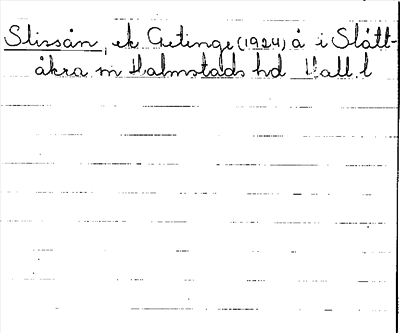 Slissån, ek Getinge (1924) å i Slätt-
åkra sn Halmstads hd Hall. l